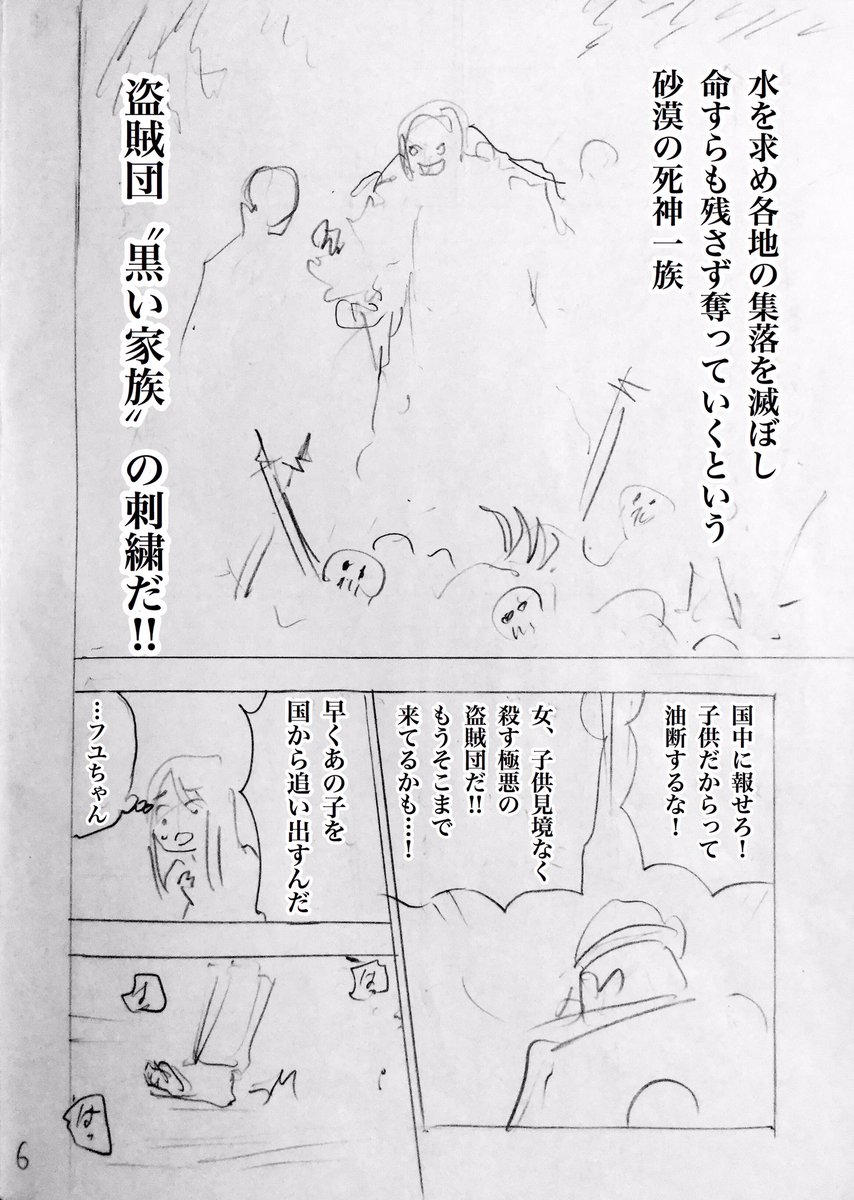 水を求め各地の集落を滅ぼし
命すらも残さず奪っていくという
砂漠の死神一族
盗賊団〝黒い家族〟の刺繍だ!!
国中に報せろ！
子供だからって
油断するな！
女、子供見境なく
殺す極悪の
盗賊団だ!!
もうそこまで
来てるかも…！
早くあの子を
国から追い出すんだ
…フユちゃん
は
は
はっ
6